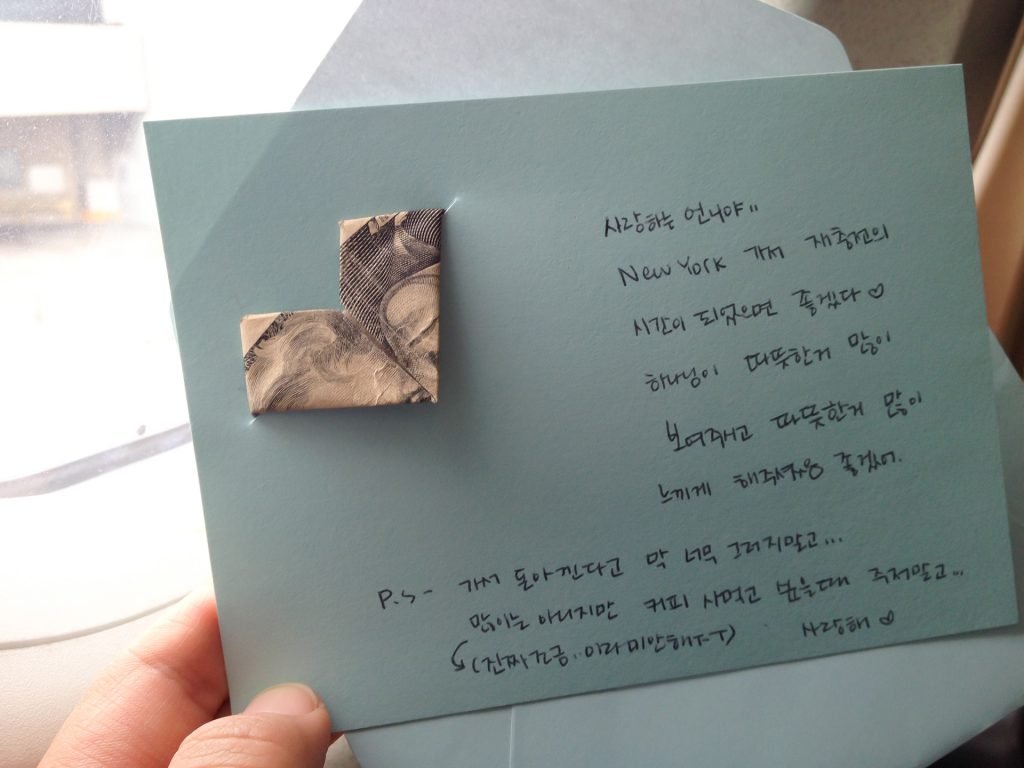 사랑하는 언니야..
New York 가서 재충전의
시간이 되었으면 좋겠다 ♡
하나님이 따뜻한거 많이
보여주시고 따뜻한거 많이
느끼게 해주셨음 좋겠어.
P.S - 가서 돈아낀다고 막 너무 그러지말고...
많이는 아니지만 커피 사먹고 싶을때 주저말고...
(진짜 조금.. 이라 미안해ㅜㅜ) 사랑해 ♡